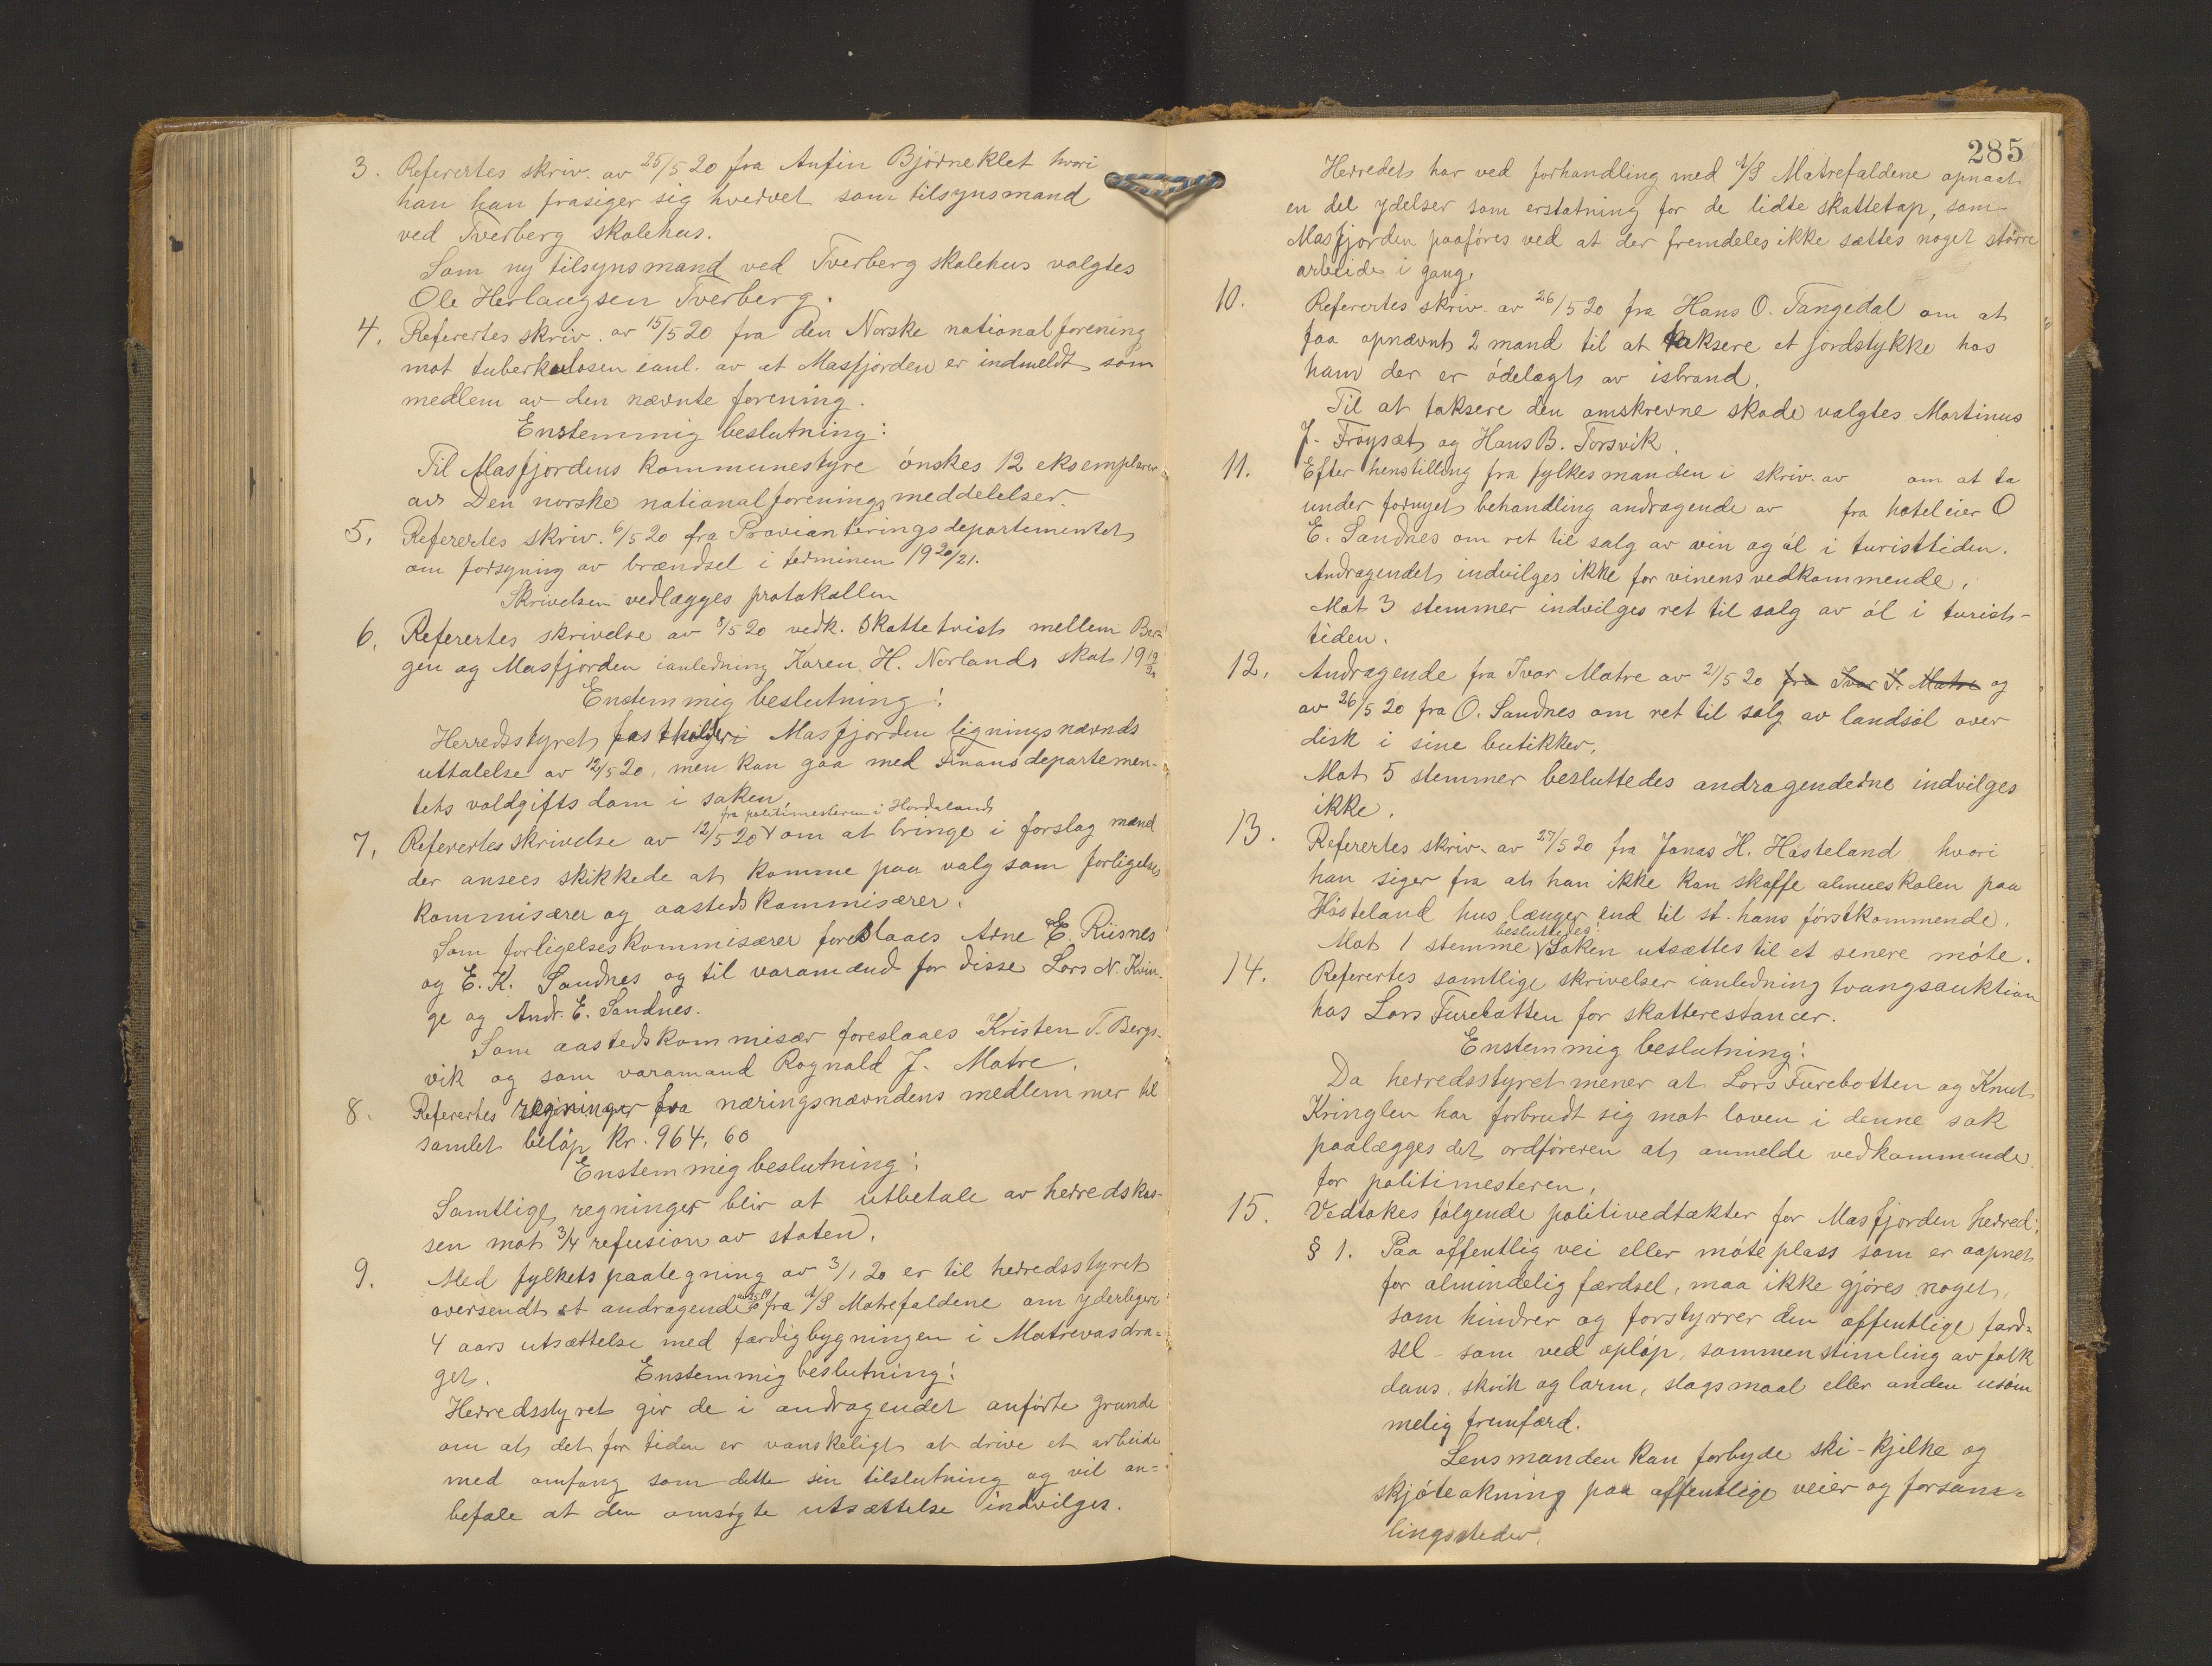 3. Referertes skriv. av 25/5 20 fra Anfin Bjørneklet hvori
han han frasiger sig hvervet som tilsynsmand
ved Tverberg skolehus.
Som ny tilsynsmand ved Tverberg skolehus valgtes
Ole Herlaugsen Tverberg.
4. Referertes skriv. av 15/5 20 fra den Norske nationalforening
mot tuberkulosen ianl. av at Masfjorden er indmeldt som
medlem av den nævnte forening.
Enstemmig beslutning:
Til Masfjordens kommunestyre ønskes 12 eksemplarer
av Den norske nationalforenings meddelelser.
5. Referertes skriv. 6/5 20 fra Provianteringsdepartementet
om forsyning av brændsel i terminen 1920/21.
Skrivelsen vedlægges protokollen
6. Referertes skrivelse av 8/5 20 vedk. Skattetvist mellem Ber-
gen og Masfjorden ianledning Karen H. Norlands skat 19 19/20
Enstemmig beslutning:
Herredsstyret fastholder Masfjorden ligningsnævnds
uttalelse av 12/5 20, men kan gaa med Finansdepartemen-
tets voldgiftsdom i saken.
fra politimesteren i Hordaland
7. Referertes skrivelse av 12/5 20 om at bringe i forslag mænd
der ansees skikkede at komme paa valg som forligelses
kommisærer og aastedskommisærer.
Som forligelseskommisærer foreslaaes Arne E. Riisnes
og E. K. Sandnes og til varamænd for disse Lars N. Kvin-
ge og Andr. E. Sandnes.
Som aastedskommisær foreslaaes Kristen T. Bergs-
vik og som varamand Rognald J. Matre.
8. Referertes regninger fra næringsnævndens medlemmer til
samlet beløp kr. 964,60
Enstemmig beslutning:
Samtlige regninger blir at utbetale av herredskas-
sen mot 3/4 refusion av staten.
9. Med fylkets paategning av 3/1 20 er til herredsstyret
oversendt et andragende fra A/S Matrefaldene om yderligere
4 aars utsættelse med færdigbygningen i Matrevasdra-
get. Enstemmig beslutning:
Herredsstyret gir de i andragendet anførte grunde
om at det for tiden er vanskeligt at drive et arbeide
med omfang som dette sin tilslutning og vil an-
befale at den omsøgte utsættelse indvilges.
285
Herredet har ved forhandling med A/S Matrefaldene opnaat
en del ydelser som erstatning for de lidte skattetap, som
Masfjorden paaføres ved at der fremdeles ikke sættes noget større
arbeide i gang.
10. Referertes skriv. av 26/5 20 fra Hans O. Tangedal om at
faa opnævnt 2 mand til at taksere et jordstykke hos
ham der er ødelagt av isbrand.
Til at taksere den omskrevne skade valgtes Martinus
J. Frøyset og Hans B. Torsvik.
11. Efter henstilling fra fylkesmanden i skriv. av om at ta
under fornyet behandling andragende av fra hoteleier O
E. Sandnes om ret til salg av vin og øl i turisttiden.
Andragendet indvilges ikke for vinens vedkommende.
Mot 3 stemmer indvilges ret til salg av øl i turist-
tiden.
12. Andragende fra Ivar Matre av 21/5 20 fra Ivar I. Matre og
av 26/5 20 fra O. Sandnes om ret til salg av landsøl over
disk i sine butikker.
Mot 5 stemmer besluttedes andragenderne indvilges
ikke.
13. Referertes skriv. av 27/5 20 fra Jonas H. Høsteland hvori
han siger fra at han ikke kan skaffe almueskolen paa
Høsteland hus længer end til st. hans førstkommende.
besluttedes:
Mot 1 stemme Saken utsættes til et senere møte.
14. Referertes samtlige skrivelser ianledning tvangsauktion
hos Lars Furebotten for skatterestancer.
Enstemmig beslutning:
Da herredsstyret mener at Lars Furebotten og Knut
Kringlen har forbrudt sig mot loven i denne sak
paalægges det ordføreren at anmelde vedkommende
for politimesteren.
15. Vedtokes følgende politivedtækter for Masfjorden herred:
§ 1. Paa offentlig vei eller møteplass som er aapnet
for almindelig færdsel, maa ikke gjøres noget,
som hindrer og forstyrrer den offentlige færd-
sel - som ved opløp, sammenstimling av folk
dans, skrik og larm, slagsmaal eller anden usøm
melig fremfærd.
Lensmanden kan forbyde ski-kjelke og
skjøteakning paa offentlige veier og forsam-
lingssteder.